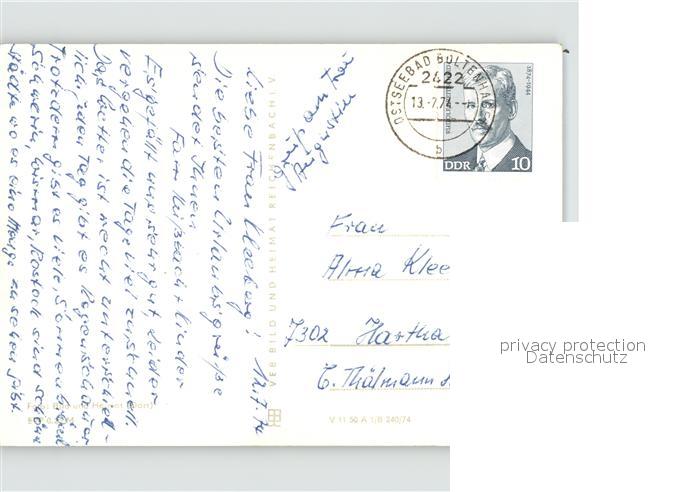 12.7.74
Liebe Frau Kleeberg!
Die besten Urlaubsgrüße
sendet Ihnen
Fam. Kinder
Es gefällt uns sehr gut, leider
vergehen die Tage viel zu schnell
Das Wetter ist recht unterschied-
lich, jeden Tag gibt es Regenschauer
Trotzdem gibt es viele
Schwerin, Wismar, Rostock sind schöne
Städte wo es eine Menge zu sehen gibt
Gruß an Frau
VEB BILD UND HEIMAT REICHENBACH I. V.
OSTSEEBAD BOLTENHAGEN
2422
13.-7.74
b
1874-1944
DDR 10
Frau
Alma Klee
7302 Hartha
E. Thälmann
V 11 50 A 1/B 240/74
privacy protection
Datenschutz